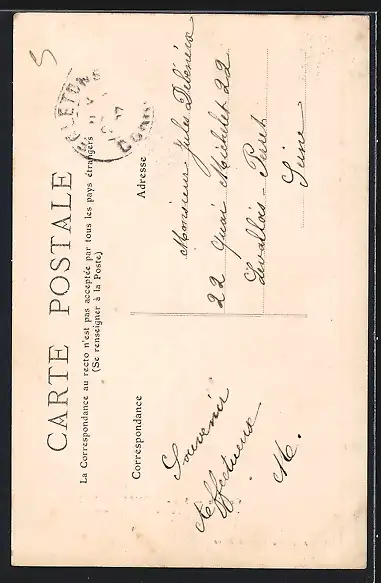 5
CARTE POSTALE
La Correspondance au recto n'est pas acceptée par tous les pays étrangers
(Se renseigner à la Poste)
Correspondance
Souvenir
affectueux
M.
Adresse
Monsieur Jules
22 Quai Michelet 22
Levallois-Perret
Seine